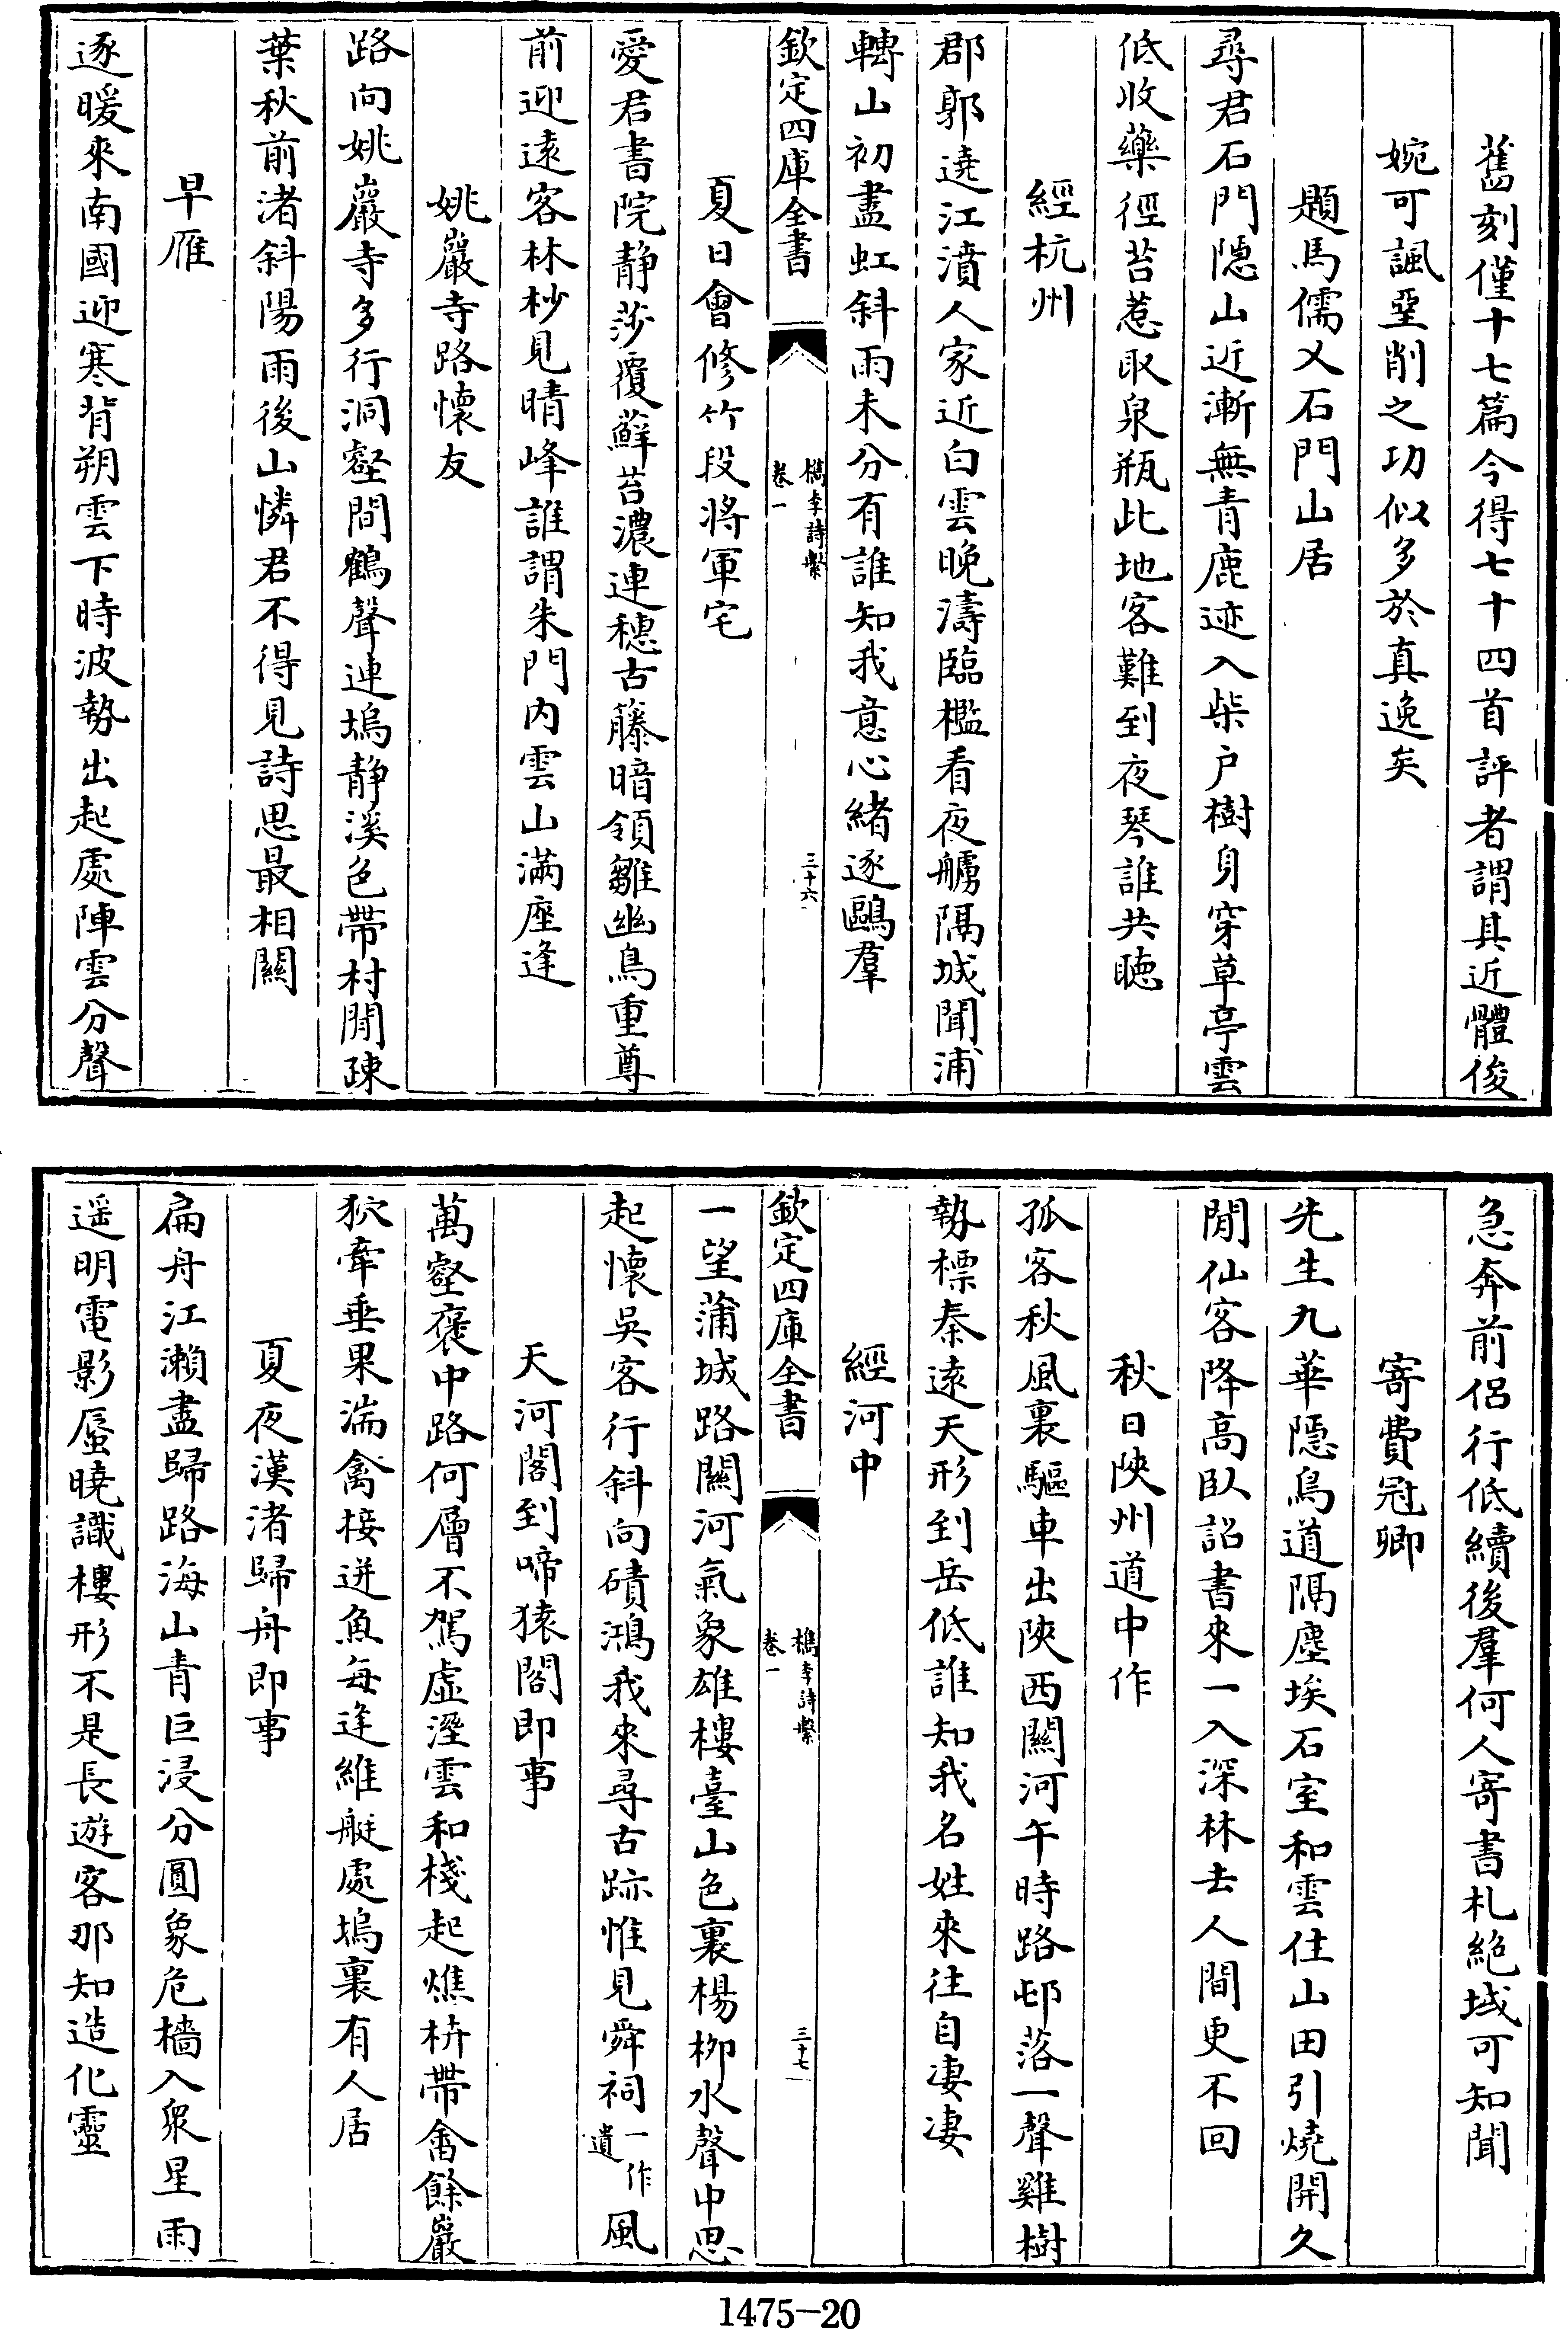 舊刻僅十七篇今得七十四首評者謂其近體俊
婉可諷堊削之功似多於真逸矣
題馬儒乂石門山居
尋君石門隱山近漸無青鹿迹入柴户樹身穿草亭雲
低收藥徑苔惹取泉瓶此地客難到夜琴誰共聴
經杭州
郡郭遶江濆人家近白雲晚濤臨檻看夜艣隔城聞浦
轉山初盡虹斜雨未分有誰知我意心緒逐鷗羣
欽定四庫全書
檇李詩繫
卷一
三十六
夏日會修竹段將軍宅
愛君書院静莎覆蘚苔濃連穗古藤暗領雛幽鳥重尊
前迎逺客林杪見晴峰誰謂朱門内雲山滿座逢
姚巖寺路懷友
路向姚巖寺多行洞壑間鶴聲連塢静溪色帶村閒疎
葉秋前渚斜陽雨後山憐君不得見詩思最相關
早雁
逐暖來南國迎寒背朔雲下時波勢出起處陣雲分聲
急奔前侣行低續後羣何人寄書札絶域可知聞
寄費冠卿
先生九華隱鳥道隔塵埃石室和雲住山田引燒開久
閒仙客降高臥詔書來一入深林去人間更不回
秋日陜州道中作
孤客秋風裏驅車出陜西關河午時路邨落一聲雞樹
勢標秦逺天形到岳低誰知我名姓來往自凄凄
經河中
欽定四庫全書
檇李詩繫
卷一
三十七
一望蒲城路關河氣象雄樓臺山色裏楊栁水聲中思
起懷吳客行斜向磧鴻我來尋古跡惟見舜祠一作遺風
天河閣到啼猿閣即事
萬壑褒中路何層不駕虚溼雲和棧起燋枿帶畬餘巖
狖牽垂果湍禽接迸魚每逢維艇處塢裏有人居
夏夜漢渚歸舟即事
扁舟江瀨盡歸路海山青巨浸分圓象危檣入衆星雨
遥明電影蜃曉識樓形不是長遊客那知造化靈
1475-20